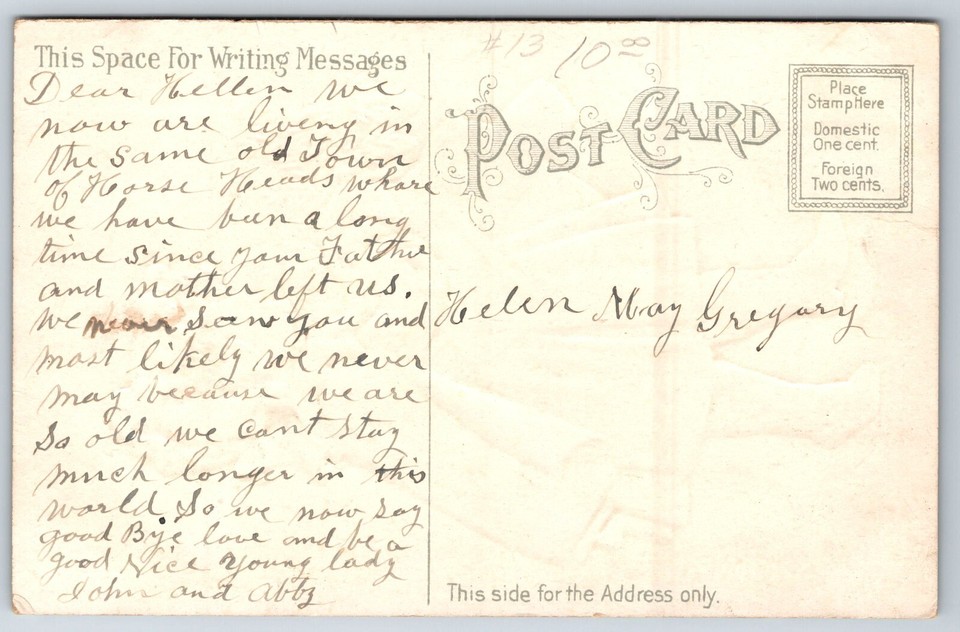 This Space For Writing Messages
Dear Hellen we
now are liveng in
the same old Town
of Horse Heads whare
we have bun a long
time since your Father
and mother left us.
we never Saw you and
most likely we never
may because we are
So old we cant stay
much longer in this
world So we now say
good Bye love and be a
good Nice Young lady
John and Abby
#13 10 00
POST CARD
Place
Stamp Here
Domestic
One cent.
Foreign
Two cents.
Helen May Gregory
This side for the Address only.